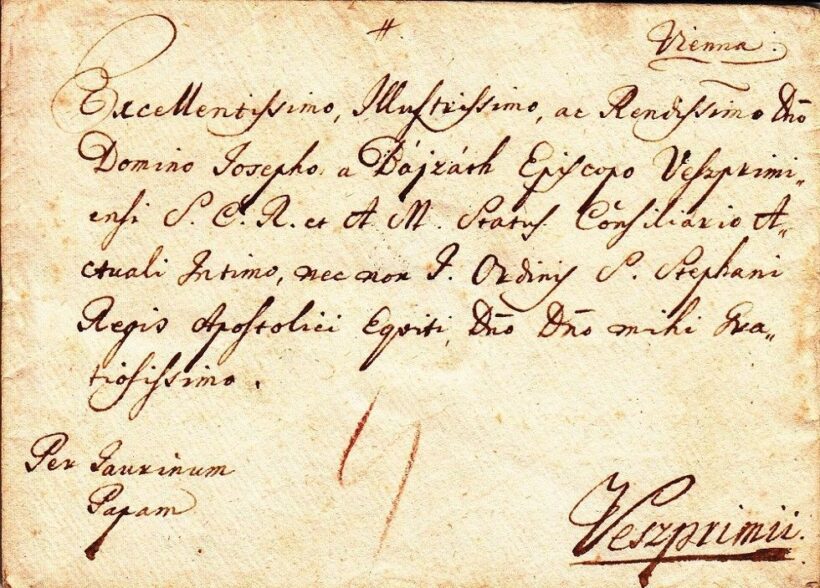 #
Vienna.
Excellentissimo, Illustrissimo, ac Rendissimo Dño
Domino Josepho a Bájzáth Episcopo Veszprimi„
ensi S. C. R. et A M. Status Consiliario A„
ctuali Intimo, nec non I. Ordinis S. Stephani
Regis Apostolici Equiti, Dño Dño mihi Gra„
tiosissimo.
Per Jaurinum
Papam
Veszprimii.